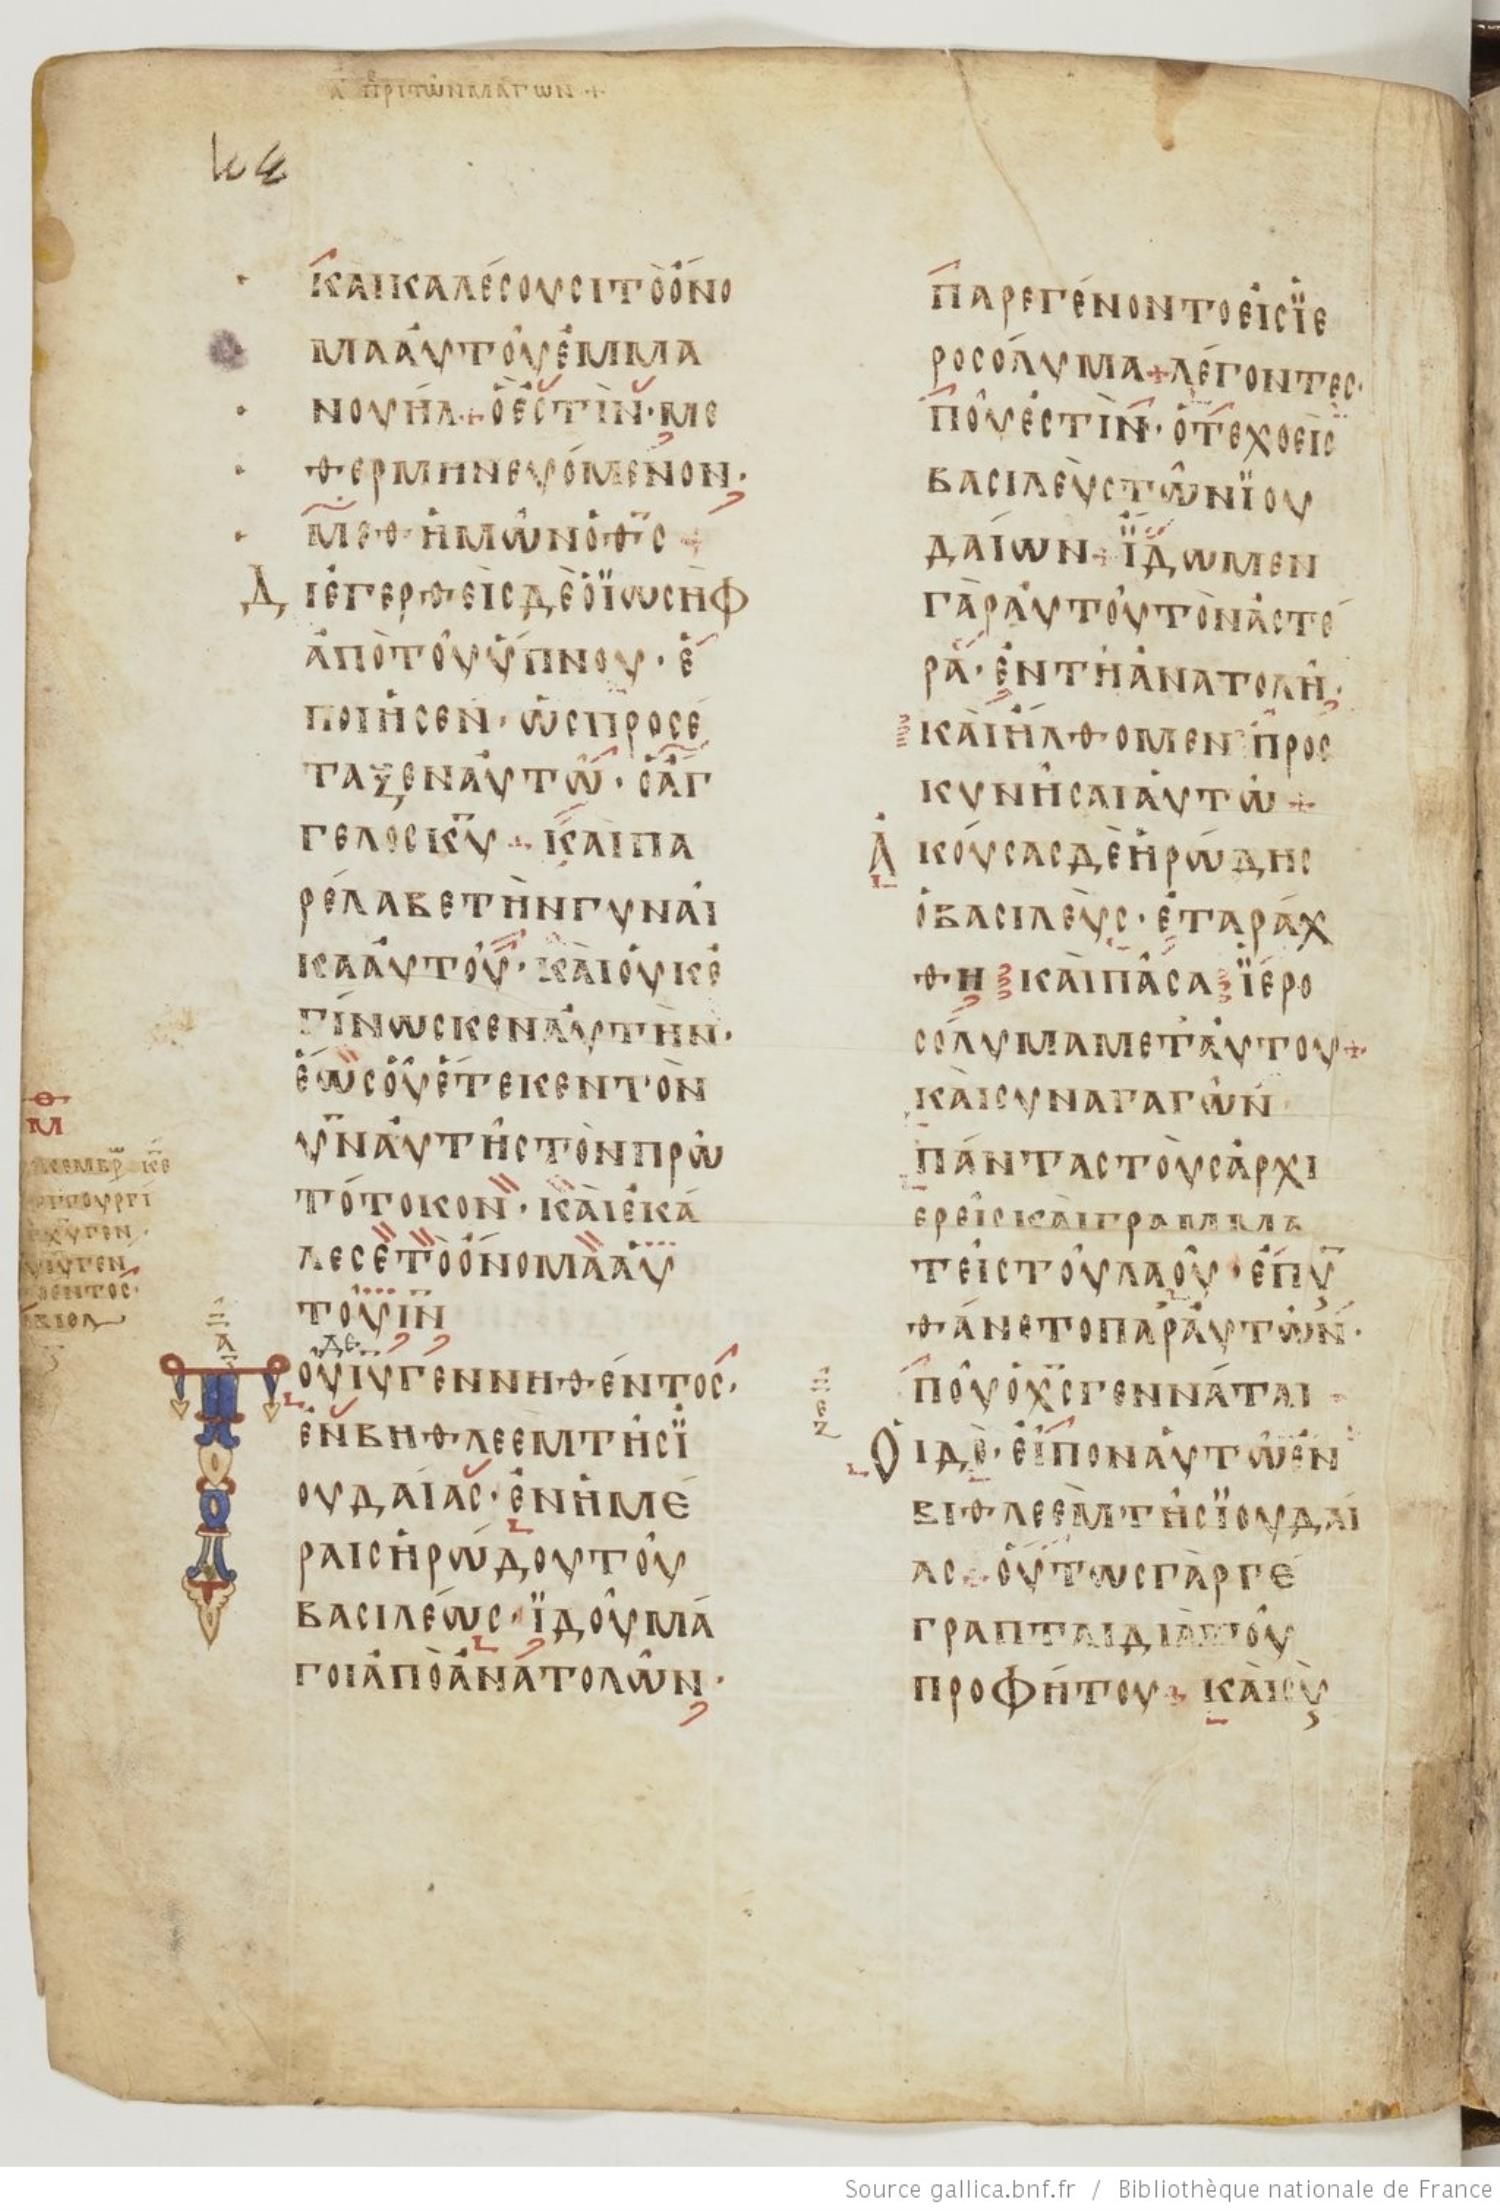 Α ΠΡΙ ΤΩΝ ΜΑΓΩΝ +
ΚΑῚ ΚΑΛΈΣΟΥΣΙ ΤῸ ὌΝΟ
ΜΑ ἈΥΤΟΥ͂ ἘΜΜΑ
ΝΟΥΉΛ + Ὅ ἘΣΤῚΝ · ΜΕ
ΘΕΡΜΗΝΕΥΌΜΕΝΟΝ ·
ΜΕΘ ἩΜΩ͂Ν Ὁ ΘΣ +
ΔΙΕΓΕΡΘΕῚΣ ΔῈ Ὁ ΪΩΣῊΦ
ἈΠῸ ΤΟΥ͂ ὝΠΝΟΥ · Ἐ
ΠΟΙΗΣΕΝ · ὩΣ ΠΡΟΣΈ
ΤΑΞΕΝ ἈΥΤΩ͂ · Ὁ ἌΓ
ΓΕΛΟΣ ΚΥ + ΚΑῚ ΠΑ
ΡΈΛΑΒΕ ΤῊΝ ΓΥΝΑΙ
ΚΑ ἈΥΤΟΥ͂ · ΚΑῚ ὈΥΚ Ἐ
ΓΊΝΩΣΚΕΝ ἈΥΤῊΝ ·
ἝΩΣ ὉΥ͂ ἜΤΕΚΕΝ ΤῸΝ
ΥΝ ἈΥΤΗ͂Σ ΤῸΝ ΠΡΩ
ΤΌΤΟΚΟΝ · ΚΑῚ ἘΚΆ
ΛΕΣΕ ΤῸ ὌΝΟΜΑ ἈΥ
ΤΟΥ͂ ΙΝ
ΔΕ
ΤΟΥ͂ ΙΥ ΓΕΝΝΗΘΈΝΤΟΣ ·
ἘΝ ΒΗΘΛΕΕΜ ΤΗ͂Σ Ϊ
ΟΥΔΑΊΑΣ · ἘΝ ἩΜΈ
ΡΑΙΣ ἩΡΏΔΟΥ ΤΟΥ͂
ΒΑΣΙΛΈΩΣ · ΪΔΟΥ͂ ΜΆ
ΓΟΙ ἈΠῸ ἈΝΑΤΟΛΩ͂Ν ·
ΠΑΡΕΓΈΝΟΝΤΟ ἘΙΣ ΪΕ
ΡΟΣΌΛΥΜΑ + ΛΈΓΟΝΤΕΣ ·
ΠΟΥ͂ ἘΣΤῚΝ · Ὁ ΤΕΧΘΕῚΣ
ΒΑΣΙΛΕῪΣ ΤΩ͂Ν ΪΟΥ
ΔΑΊΩΝ + ΪΔΩΜΕΝ
ΓᾺΡ ἈΥΤΟΥ͂ ΤῸΝ ἈΣΤΈ
ΡΑ · ἘΝ ΤΗ͂ ἈΝΑΤΟΛΗ͂ ·
ΚΑῚ ἬΛΘΟΜΕΝ ΠΡΟΣ
ΚΥΝΗ͂ΣΑΙ ἈΥΤΩ͂ +
ἈΚΟΎΣΑΣ ΔῈ ἩΡΏΔΗΣ
Ὁ ΒΑΣΙΛΕῪΣ · ἘΤΑΡΆΧ
ΘΗ ΚΑῚ ΠΑ͂ΣΑ ΪΕΡΟ
ΣΌΛΥΜΑ ΜΕΤ ἈΥΤΟΥ +
ΚΑῚ ΣΥΝΑΓΑΓΩ͂Ν
ΠΆΝΤΑΣ ΤΟῪΣ ἈΡΧΙ
ΕΡΕΙ͂Σ ΚΑῚ ΓΡΑΜΜΑ
ΤΕΙΣ ΤΟΥ͂ ΛΑΟΥ͂ · ἘΠΥ
ΘΆΝΕΤΟ ΠΑΡ ἈΥΤΩ͂Ν ·
ΠΟΥ͂ Ὁ ΧΣ ΓΕΝΝΑ͂ΤΑΙ +
ὉΙ ΔῈ · ἘΙΠΟΝ ἈΥΤΩ͂ ἘΝ
ΒΙΘΛΕΕΜ ΤΗ͂Σ ΪΟΥΔΑΊ
ΑΣ + ὉΥΤΩΣ ΓᾺΡ ΓΈ
ΓΡΑΠΤΑΙ ΔΙᾺ ΤΟΥ͂
ΠΡΟΦΉΤΟΥ + ΚΑῚ ΣῪ
Source gallica.bnf.fr / Bibliothèque nationale de France